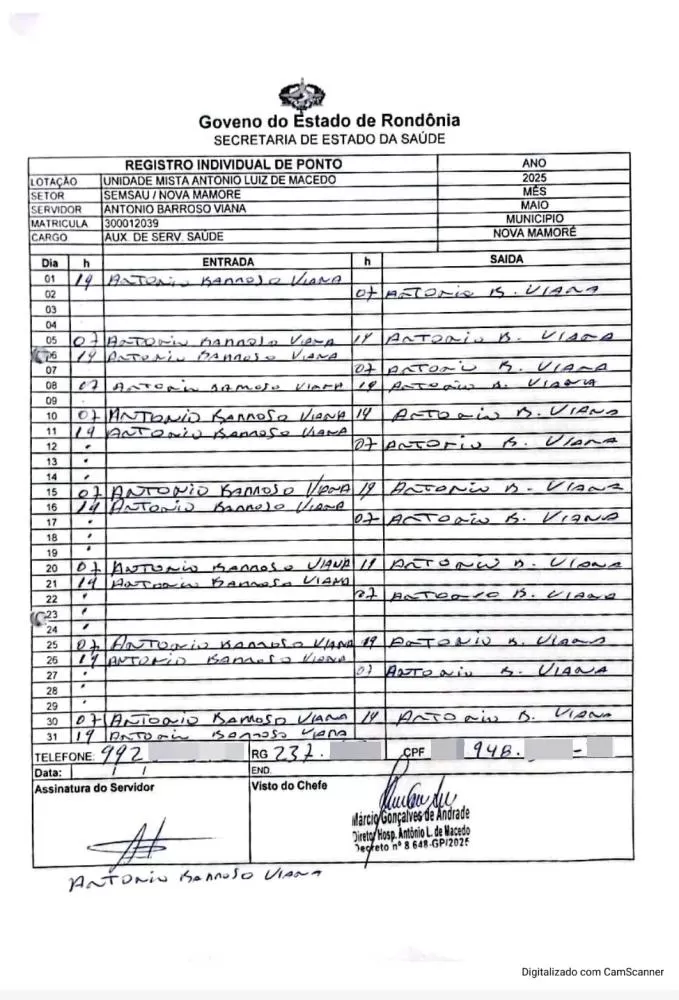 Goveno do Estado de Rondônia
SECRETARIA DE ESTADO DA SAÚDE
REGISTRO INDIVIDUAL DE PONTO ANO
LOTAÇÃO UNIDADE MISTA ANTONIO LUIZ DE MACEDO 2025
SETOR SEMSAU / NOVA MAMORE MÊS
SERVIDOR ANTONIO BARROSO VIANA MAIO
MATRICULA 300012039 MUNICIPIO
CARGO AUX. DE SERV. SAÚDE NOVA MAMORÉ
Dia h ENTRADA h SAIDA
01 19 ANTONIO BARROSO VIANA
02 07 ANTONIO B. VIANA
03
04
05 07 ANTONIO BARROSO VIANA 19 ANTONIO B. VIANA
06 19 ANTONIO BARROSO VIANA
07 07 ANTONIO B. VIANA
08 07 ANTONIO BARROSO VIANA 19 ANTONIO B. VIANA
09
10 07 ANTONIO BARROSO VIANA 19 ANTONIO B. VIANA
11 19 ANTONIO BARROSO VIANA
12 07 ANTONIO B. VIANA
13
14
15 07 ANTONIO BARROSO VIANA 19 ANTONIO B. VIANA
16 19 ANTONIO BARROSO VIANA
17 07 ANTONIO B. VIANA
18
19
20 07 ANTONIO BARROSO VIANA 19 ANTONIO B. VIANA
21 19 ANTONIO BARROSO VIANA
22 07 ANTONIO B. VIANA
23
24
25 07 ANTONIO BARROSO VIANA 19 ANTONIO B. VIANA
26 19 ANTONIO BARROSO VIANA
27 07 ANTONIO B. VIANA
28
29
30 07 ANTONIO BARROSO VIANA 19 ANTONIO B. VIANA
31 19 ANTONIO BARROSO VIANA
TELEFONE: 992 RG 237. CPF 948. -
Data: / / END.
Assinatura do Servidor Visto do Chefe
Márcio Gonçalves de Andrade
Diretor Hosp. Antônio L. de Macedo
Decreto nº 8 648-GP/2025
ANTONIO BARROSO VIANA
Digitalizado com CamScanner